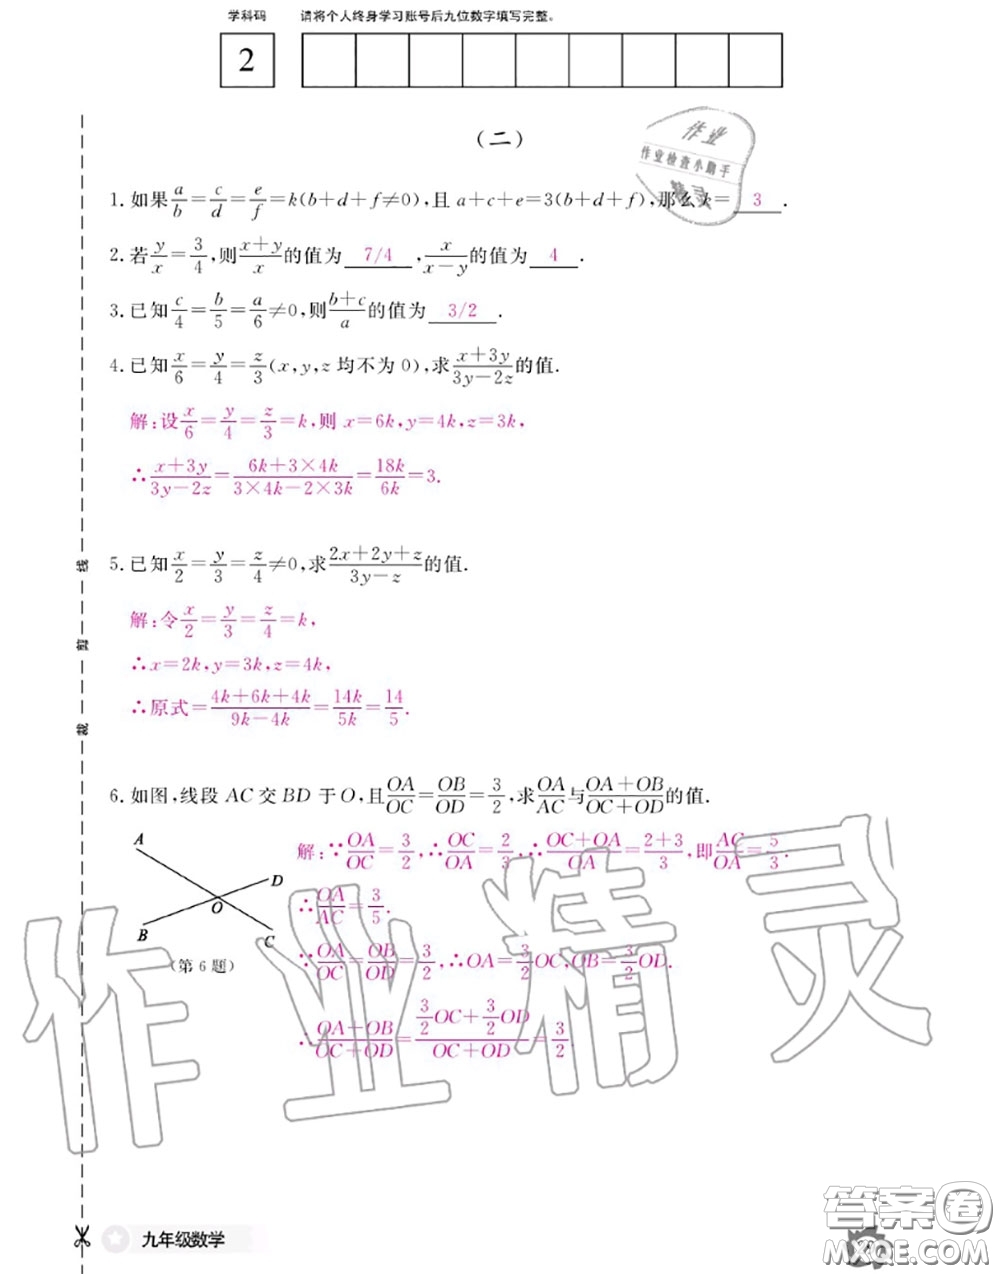 学科码 请将个人终身学习账号后九位数字填写完整。
2
(二)
作业
作业检查小助手
1.如果a/b=c/d=e/f=k(b+d+f≠0),且a+c+e=3(b+d+f),那么k=3.
2.若y/x=3/4,则(x+y)/x的值为7/4,x/(x-y)的值为4.
3.已知c/4=b/5=a/6≠0,则(b+c)/a的值为3/2.
4.已知x/6=y/4=z/3(x,y,z均不为0),求(x+3y)/(3y-2z)的值.
解:设x/6=y/4=z/3=k,则x=6k,y=4k,z=3k,
∴(x+3y)/(3y-2z)=(6k+3×4k)/(3×4k-2×3k)=18k/6k=3.
5.已知x/2=y/3=z/4≠0,求(2x+2y+z)/(3y-z)的值.
解:令x/2=y/3=z/4=k,
∴x=2k,y=3k,z=4k,
∴原式=(4k+6k+4k)/(9k-4k)=14k/5k=14/5.
6.如图,线段AC交BD于O,且OA/OC=OB/OD=3/2,求OA/AC与(OA+OB)/(OC+OD)的值.
A
D
O
B
C
(第6题)
解:∵OA/OC=3/2,∴OC/OA=2/3,∴(OC+OA)/OA=(2+3)/3,即AC/OA=5/3.
∴OA/AC=3/5.
∵OA/OC=OB/OD=3/2,∴OA=3/2OC,OB=3/2OD.
∴(OA+OB)/(OC+OD)=(3/2OC+3/2OD)/(OC+OD)=3/2
作业精灵
线
剪
裁
九年级数学
答案圈